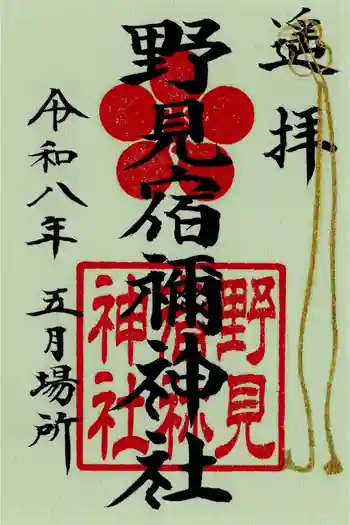 遥拝
野見宿禰神社
令和八年 五月場所
野見宿祢神社